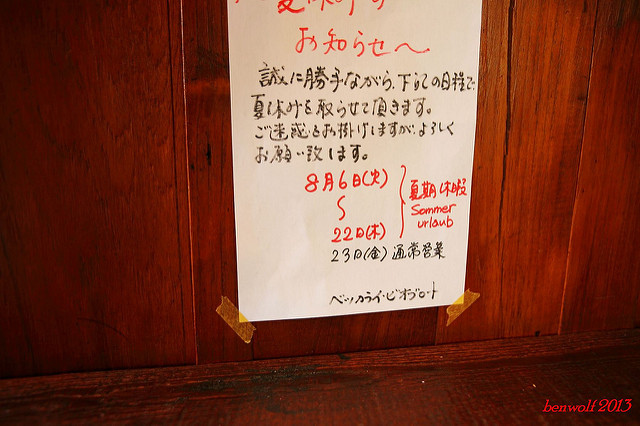 夏休みの
お知らせ〜
誠に勝手ながら、下記の日程で
夏休みを取らせて頂きます。
ご迷惑をお掛けしますが、よろしく
お願い致します。
8月6日(火)
〜
22日(木)
夏期休暇
Sommer
urlaub
23日(金)通常営業
ベッカライ・ビオブロート
benwolf 2013